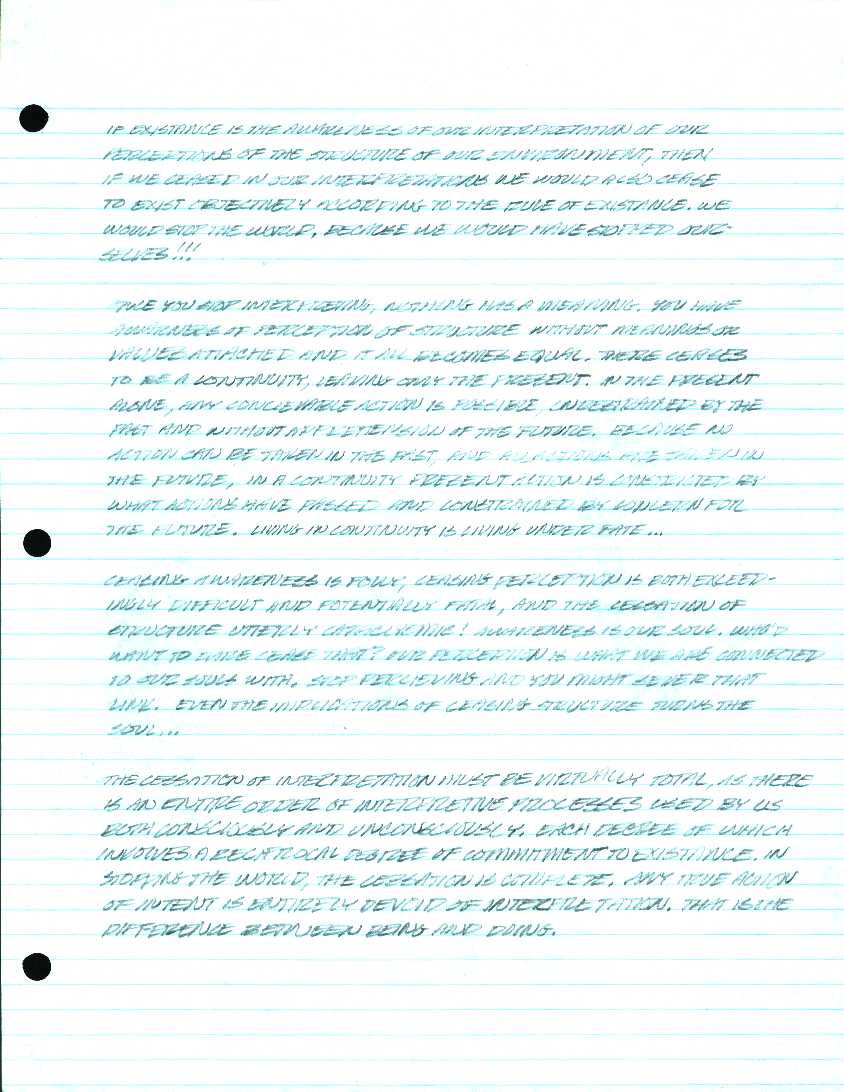 IF EXISTANCE IS THE AWARENESS OF OUR INTERPRETATION OF OUR
PERCEPTIONS OF THE STRUCTURE OF OUR ENVIRONMENT, THEN
IF WE CEASED IN OUR INTERPRETATIONS WE WOULD ALSO CEASE
TO EXIST OBJECTIVELY ACCORDING TO THE RULE OF EXISTANCE. WE
WOULD STOP THE WORLD, BECAUSE WE WOULD HAVE STOPPED OUR-
SELVES!!!
YOU STOP INTERPRETING, NOTHING HAS A MEANING. YOU HAVE
AWARENESS OF PERCEPTION OF STRUCTURE WITHOUT MEANINGS OR
VALUES ATTACHED AND IT ALL BECOMES EQUAL. THERE CEASES
TO BE A CONTINUITY, LEAVING ONLY THE PRESENT. IN THE PRESENT
ALONE, ANY CONCIEVABLE ACTION IS POSSIBLE, BY THE
PAST AND WITHOUT OF THE FUTURE. BECAUSE NO
ACTION CAN BE TAKEN IN THE PAST, AND ALL ACTIONS ARE TAKEN IN
THE FUTURE, IN A CONTINUITY PRESENT ACTION IS BY
WHAT ACTIONS HAVE PASSED AND CONSTRAINED BY CONCERN FOR
THE FUTURE. LIVING IN CONTINUITY IS LIVING UNDER FATE...
CEASING AWARENESS IS FOLLY, CEASING PERCEPTION IS BOTH EXCEED-
INGLY DIFFICULT AND POTENTIALLY FATAL, AND THE CESSATION OF
STRUCTURE UTTERLY CATACLYSMIC! AWARENESS IS OUR SOUL. WHO'D
WANT TO HAVE CEASE THAT? OUR PERCEPTION IS WHAT WE ARE CONNECTED
TO OUR SOULS WITH. STOP PERCIEVING AND YOU MIGHT SEVER THAT
LINK. EVEN THE IMPLICATIONS OF CEASING STRUCTURE TURNS THE
SOUL...
THE CESSATION OF INTERPRETATION MUST BE VIRTUALLY TOTAL, AS THERE
IS AN ENTIRE ORDER OF INTERPRETIVE PROCESSES USED BY US
BOTH CONSCIOUSLY AND UNCONSCIOUSLY. EACH DEGREE OF WHICH
INVOLVES A RECIPROCAL DEGREE OF COMMITMENT TO EXISTANCE. IN
STOPPING THE WORLD, THE CESSATION IS COMPLETE. ANY TRUE ACTION
OF INTENT IS ENTIRELY DEVOID OF INTERPRETATION. THAT IS THE
DIFFERENCE BETWEEN BEING AND DOING.